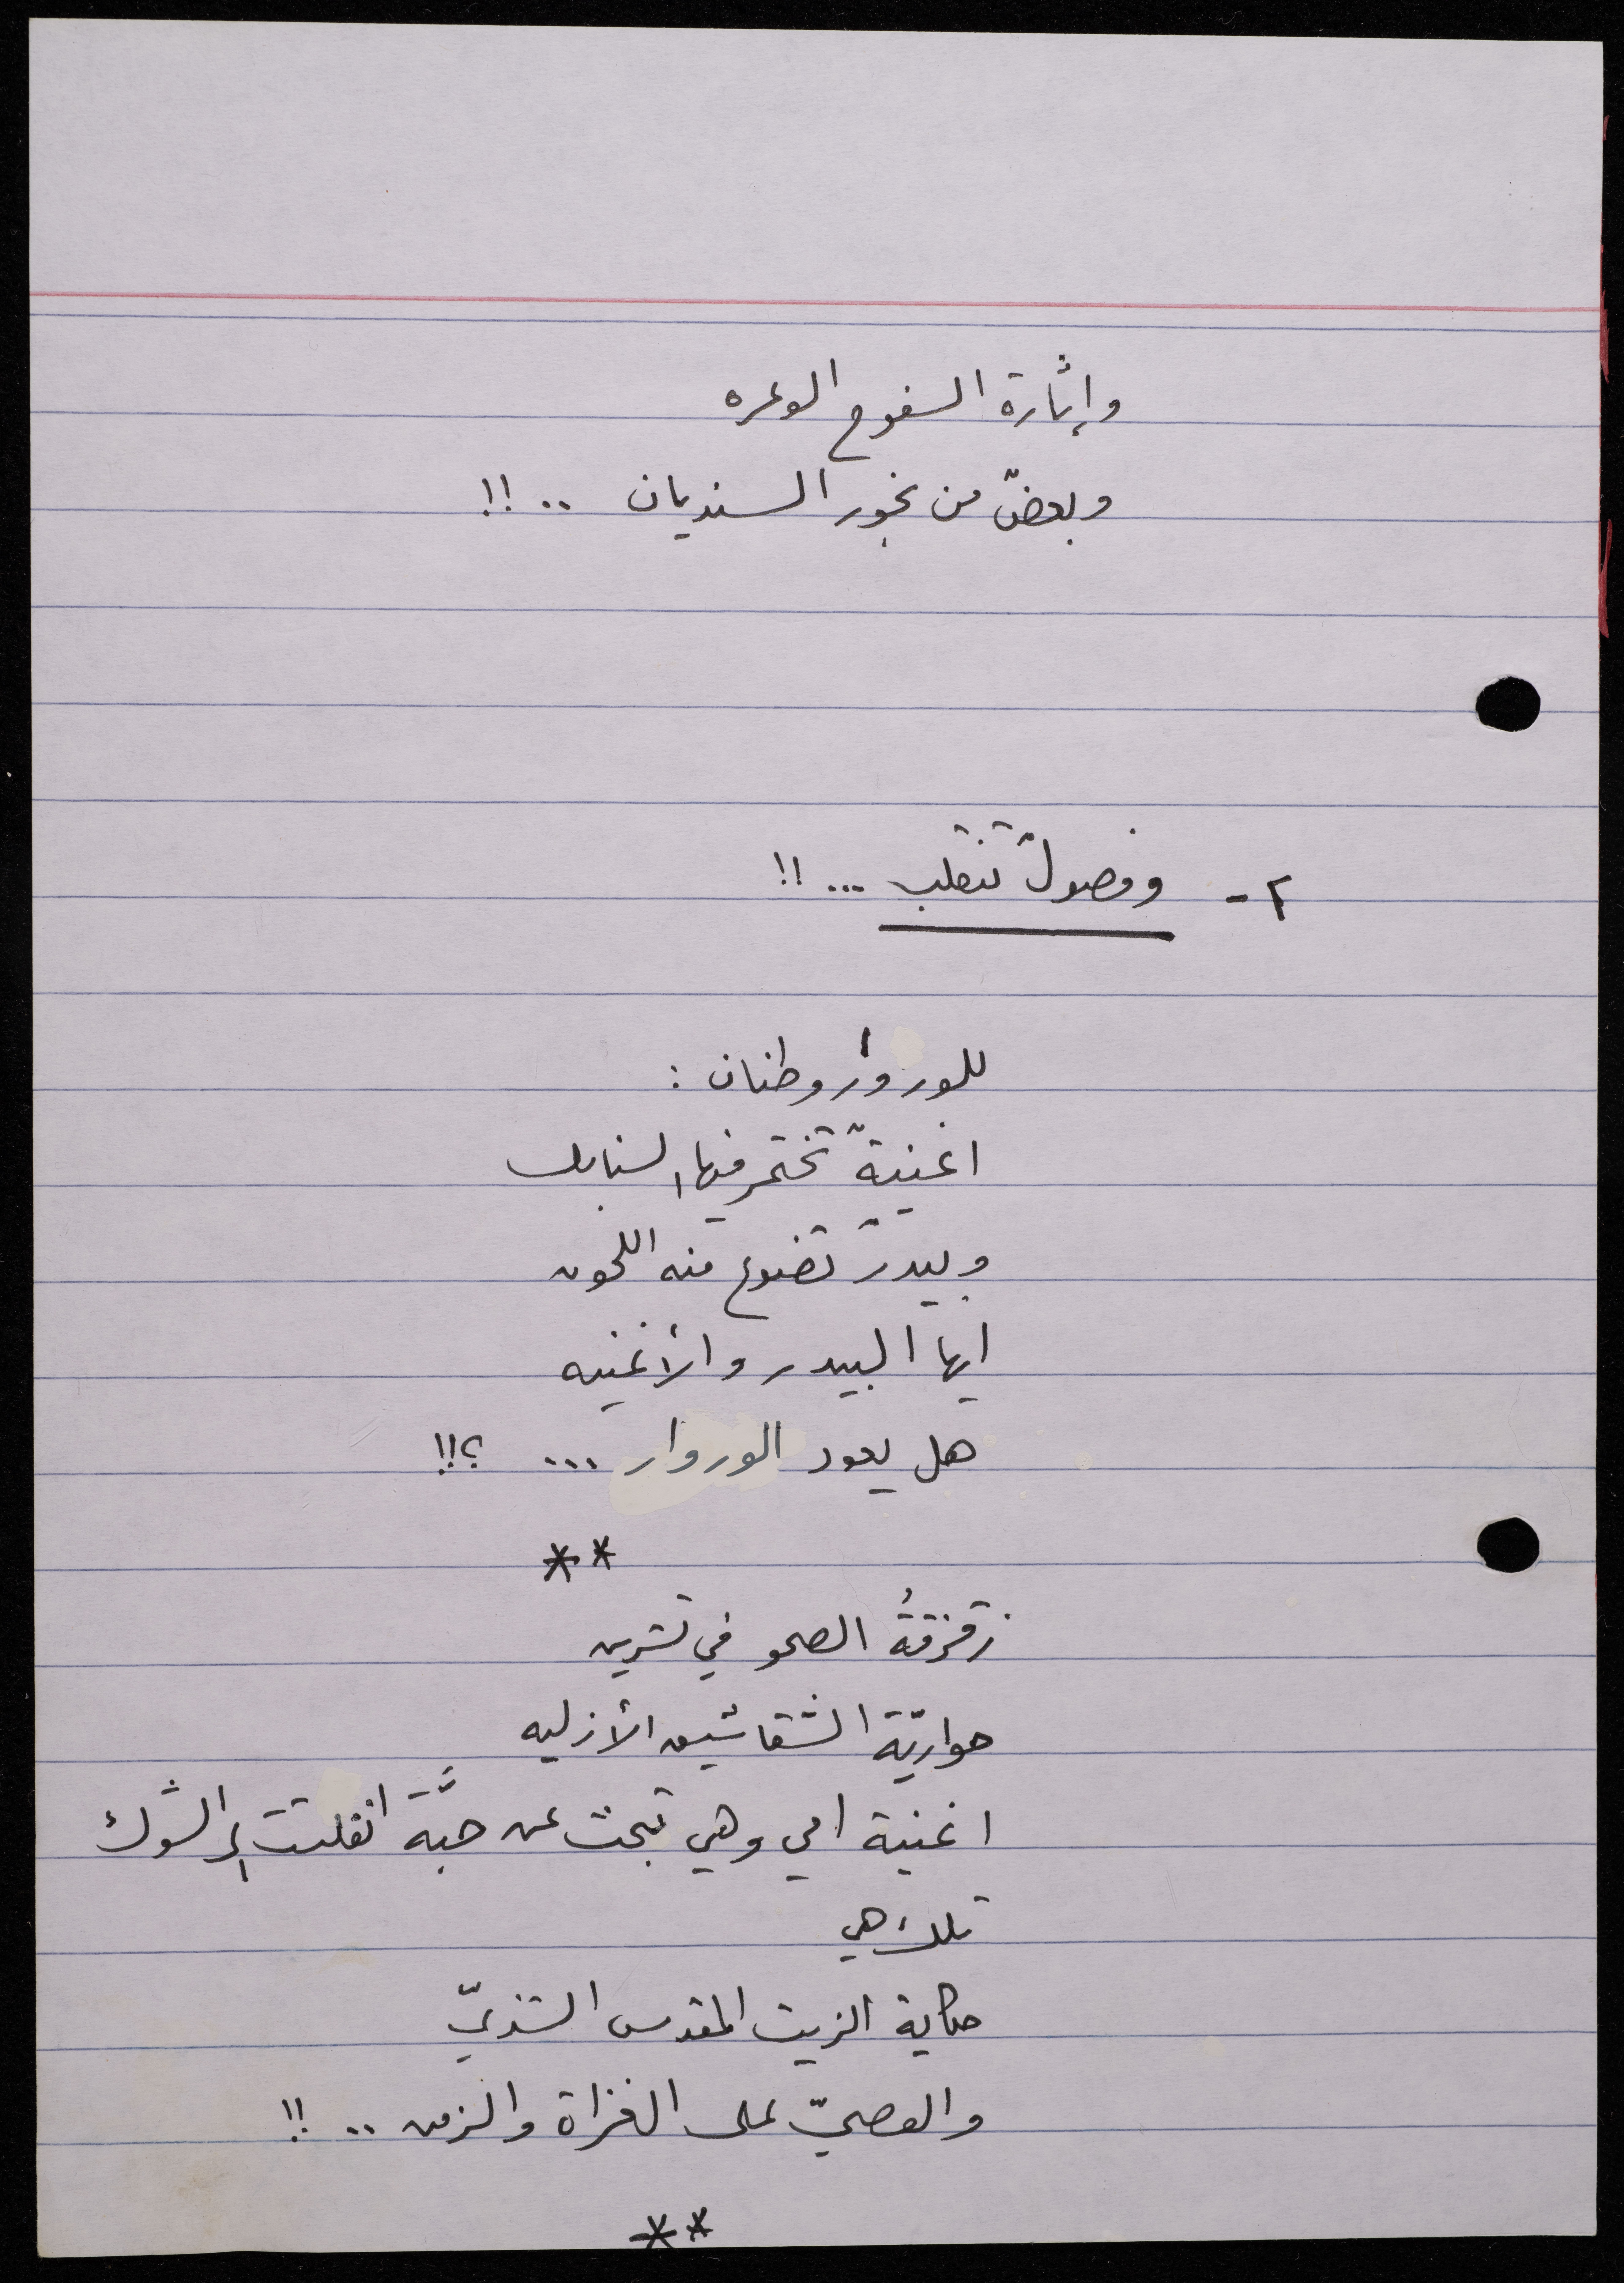 وإثارة السفوح الوعره
وبعضٌ من بخور السنديان .. !!
٢- وفصولٌ تنقلب ... !!
للوروار وطنان :
اغنيةٌ تختمر فيها السنابل
وبيدرٌ تضوع منه اللحون
ايها البيدر والأغنيه
هل يعود الوروار ... ؟!!
**
زقزقةُ الصحو في تشرين
حواريّة الشقائق الأزليه
اغنية امي وهي تبحث عن حبَّة انفلتت إلى الشوك
تلكَ هي
حكاية الزيت المقدس الشذيّ
والعصيّ على الغزاة والزمن .. !!
**